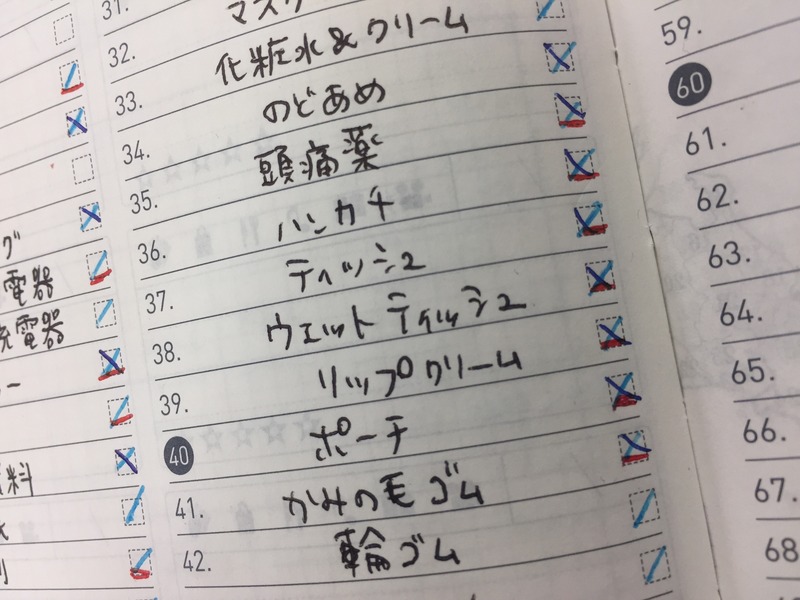 31.
32. マスク
33. 化粧水&クリーム
34. のどあめ
35. 頭痛薬
36. ハンカチ
37. ティッシュ
38. ウェットティッシュ
39. リップクリーム
40 ポーチ
41. かみの毛ゴム
42. 輪ゴム
グ
電器
充電器
ー
料
59.
60
61.
62.
63.
64.
65.
66.
67.
68